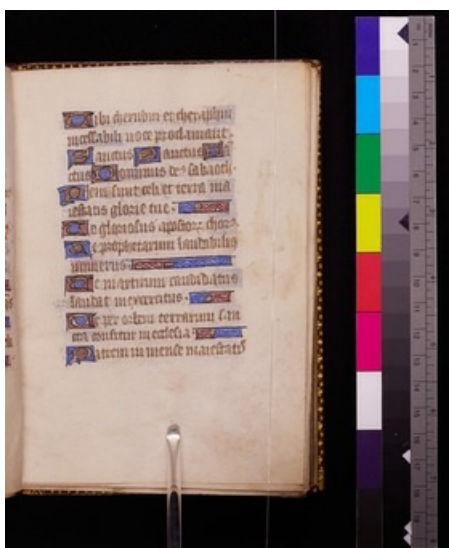 Tibi cherubin et cheraphin
incessabili uoce proclamant.
Sanctus Sanctus San
ctus Dominus de⁹ sabaoth.
Pleni sunt celi et terra ma
iestatis glorie tue.
Te gloriosus apostolo⁊ chor⁹.
Te prophetarum laudabilis
numerus.
Te martirum candidatus
laudat in exercitus.
Te per orbem terrarum san
cta confitur in ecclesia.
Patrem in mense maiestatis